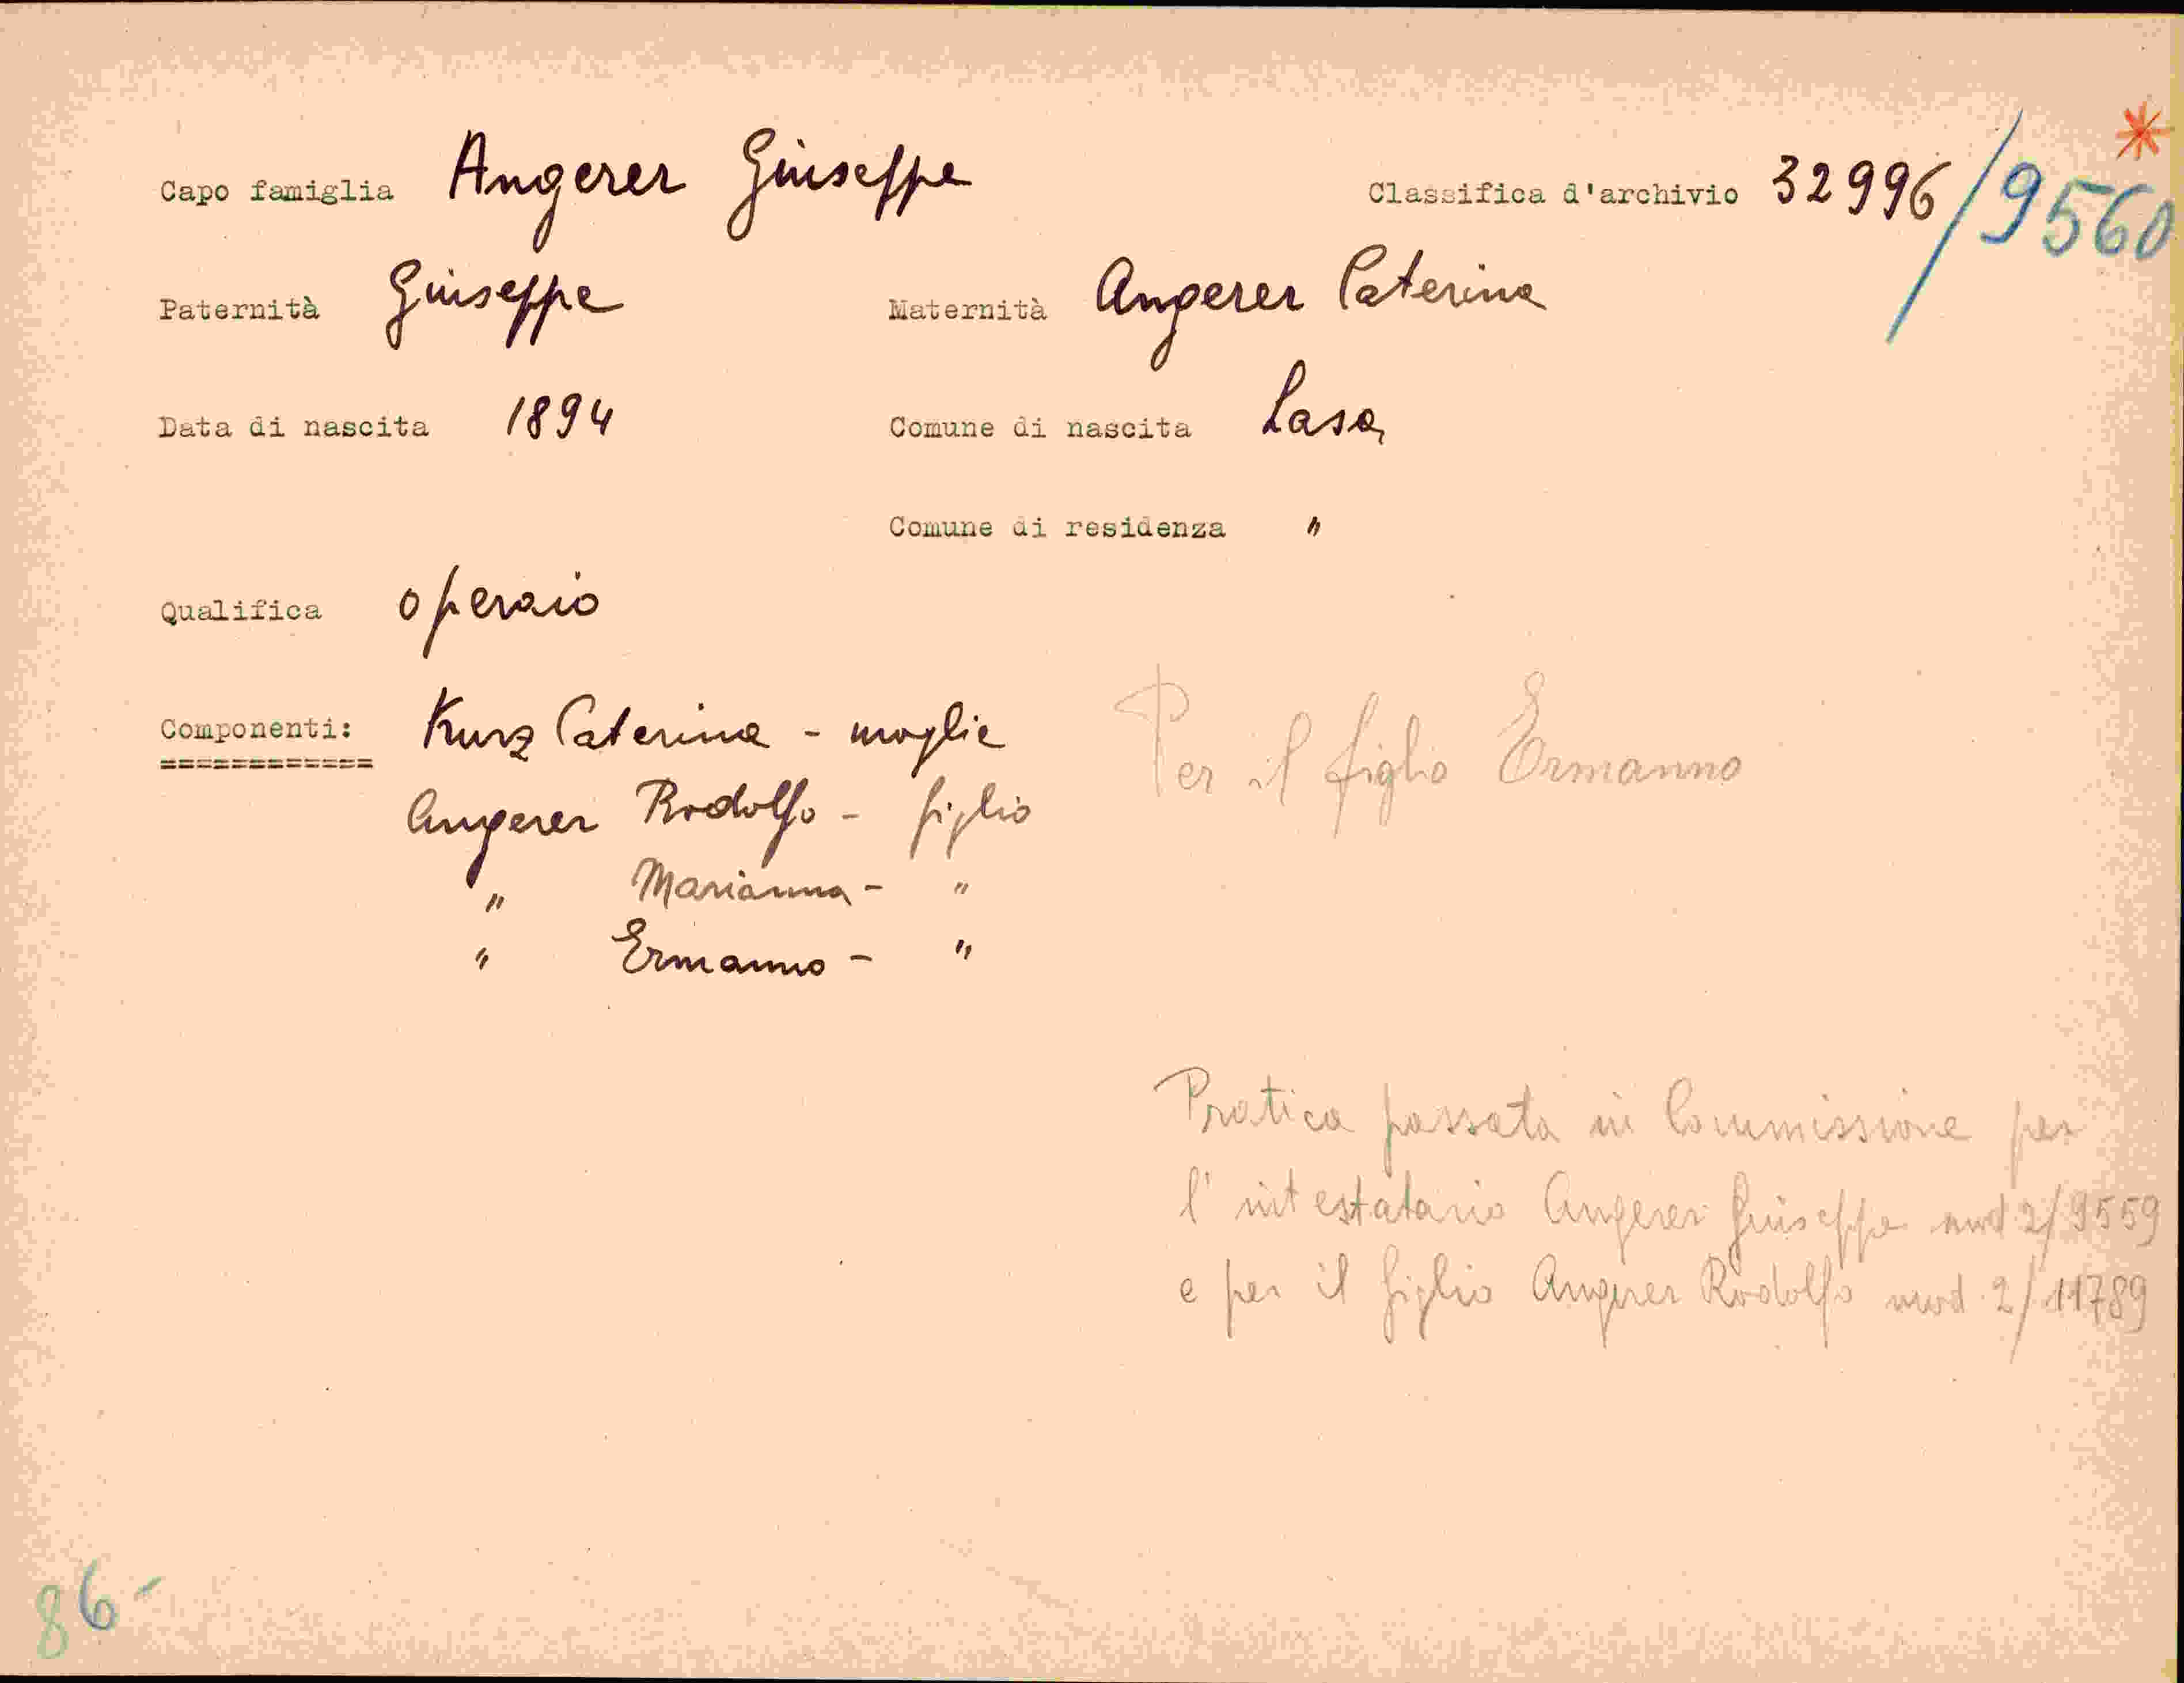 Capo famiglia Angerer Giuseppe Classifica d'archivio 32996/9560
Paternità Giuseppe Maternità Angerer Caterina
Data di nascita 1894 Comune di nascita Lasa
Comune di residenza "
Qualifica operaio
Componenti: Kurz Caterina - moglie
============
Per il figlio Ermanno
Angerer Rodolfo - figlio
" Marianna - "
" Ermanno - "
Pratica passata in Commissione per
l'intestatario Angerer Giuseppe mod 2/9559
e per il figlio Angerer Rodolfo mod. 2/11789
86